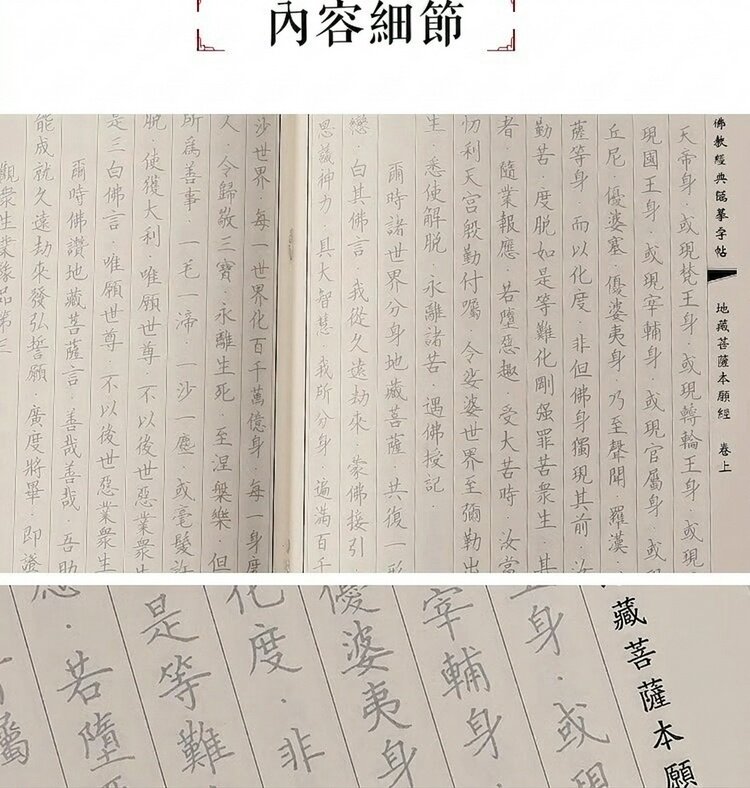 內容細節
佛教經典臨摹字帖
地藏菩薩本願經 卷上
天帝身．或現梵王身．或現轉輪王身．或現
現國王身．或現宰輔身．或現官屬身．或
丘尼．優婆塞．優婆夷身．乃至聲聞．羅漢．
薩等身．而以化度．非但佛身獨現其前．汝
勤苦．度脫如是等難化剛強罪苦眾生．其
者．隨業報應．若墮惡趣．受大苦時．汝當
忉利天宮殷勤付囑．令娑婆世界至彌勒出
生．悉使解脫．永離諸苦．遇佛授記
爾時諸世界分身地藏菩薩．共復一形
戀．白其佛言．我從久遠劫來．蒙佛接引
思議神力．具大智慧．我所分身．遍滿百千
沙世界．每一世界化百千萬億身．每一身度
人．令歸敬三寶．永離生死．至涅槃樂．但
所為善事．一毛一渧．一沙一塵．或毫髮許
脫．使獲大利．唯願世尊．不以後世惡業眾生
是三白佛言．唯願世尊．不以後世惡業眾生
爾時佛讚地藏菩薩言．善哉善哉．吾助
能成就久遠劫來發弘誓願．廣度將畢．即證
觀眾生業緣品第三
藏菩薩本願
身．或現
宰輔身
優婆夷身
化度．非
是等難
應．若墮惡
屬